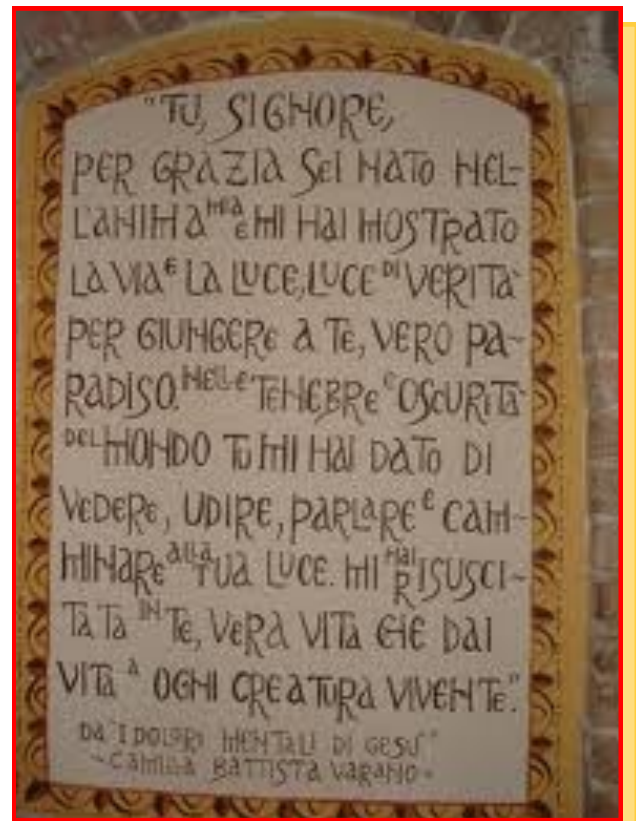 "TU, SIGNORE,
PER GRAZIA SEI NATO NEL-
L'ANIMA MIA E MI HAI MOSTRATO
LA VIA E LA LUCE, LUCE DI VERITA'
PER GIUNGERE A TE, VERO PA-
RADISO. NELLE TENEBRE E OSCURITA'
DEL MONDO TU MI HAI DATO DI
VEDERE, UDIRE, PARLARE E CAM-
MINARE ALLA TUA LUCE. MI HAI RISUSCI-
TATA IN TE, VERA VITA CHE DAI
VITA A OGNI CREATURA VIVENTE."
DA "I DOLORI MENTALI DI GESU'"
- CAMILLA BATTISTA VARANO -